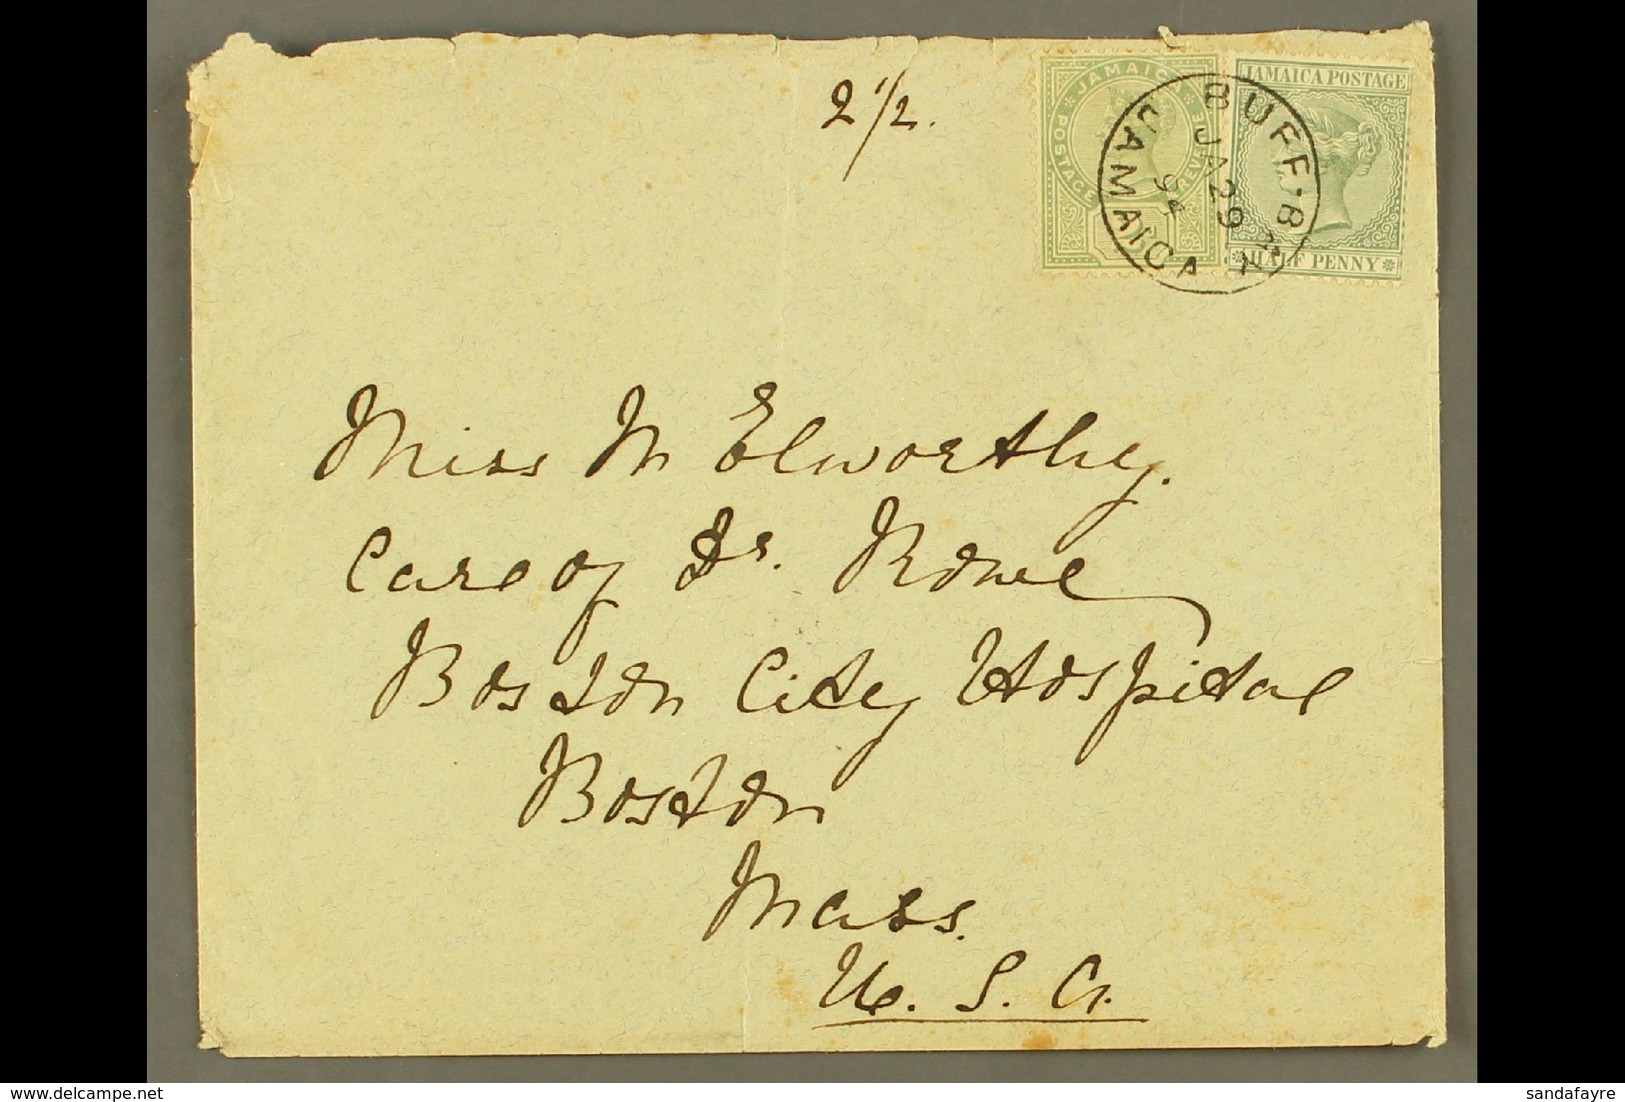 2 1/2.
JAMAICA
POSTAGE
REVE
JAMAICA POSTAGE
HALF PENNY
BUFF.B
JA 29
94
JAMAICA
Miss M Elworthy.
Care of Dr. Rowe
Boston City Hospital
Boston
Mass.
U. S. A.
delcampe.net
sandafayre